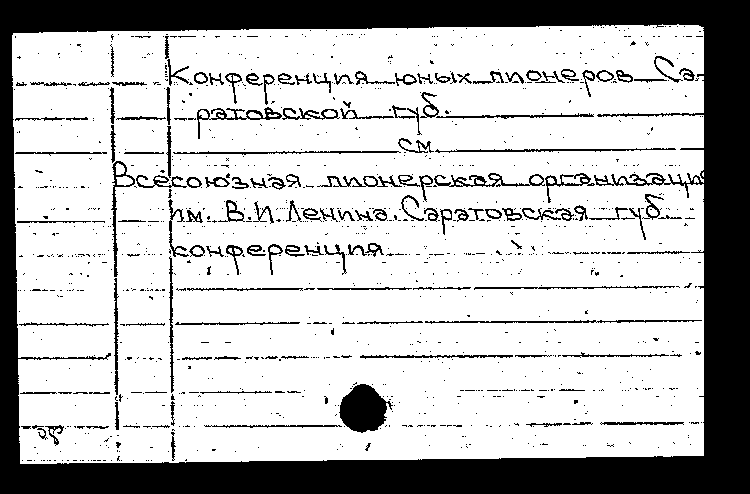 Конференция юных пионеров Са-
ратовской губ.
см.
Всесоюзная пионерская организация
им. В.И. Ленина. Саратовская губ.
конференция